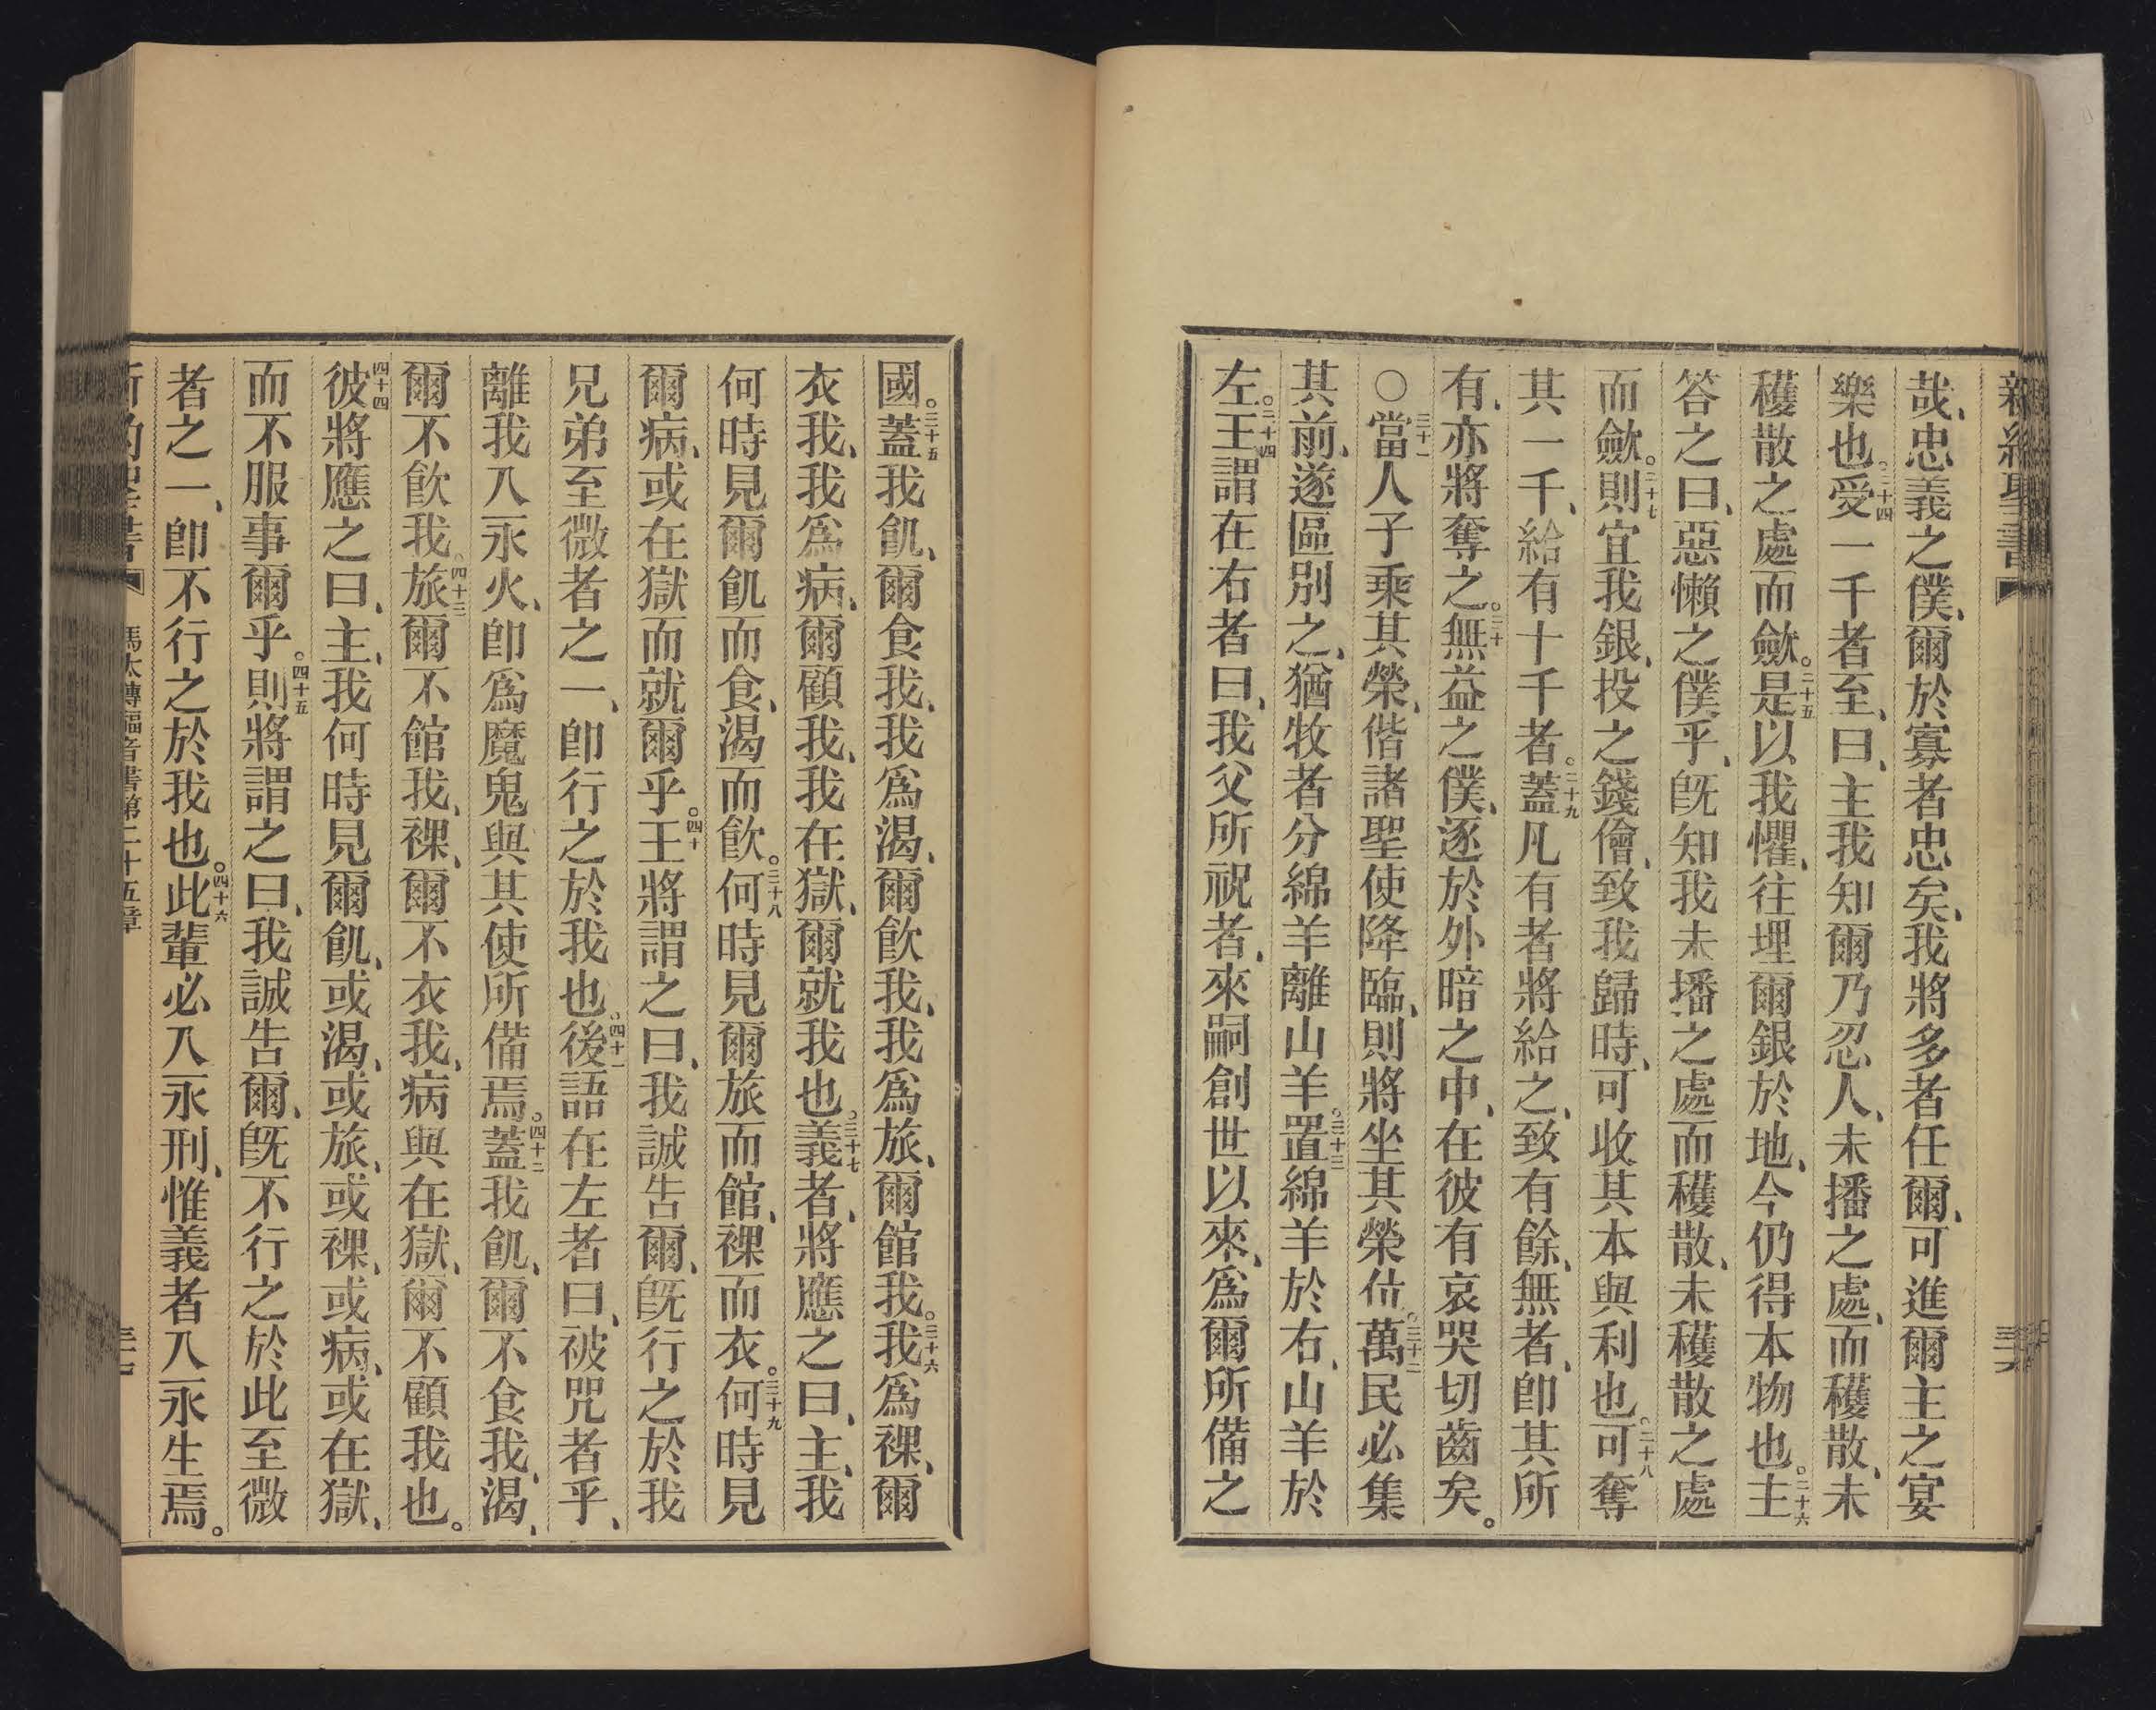 哉、忠義之僕、爾於寡者忠矣、我將多者任爾、可進爾主之宴
樂也。二十四受一千者至、曰、主我知爾乃忍人、未播之處、而穫散、未
穫散之處而斂。二十五是以我懼、往埋爾銀於地、今仍得本物也。二十六主
答之曰、惡懶之僕乎、旣知我未播之處而穫散、未穫散之處
而斂。二十七則宜我銀、投之錢儈、致我歸時、可收其本與利也。二十八可奪
其一千、給有十千者。二十九蓋凡有者將給之、致有餘、無者、卽其所
有、亦將奪之。三十無益之僕、逐於外暗之中、在彼有哀哭切齒矣。
○三十一當人子乘其榮、偕諸聖使降臨、則將坐其榮位。三十二萬民必集
其前、遂區別之、猶牧者分綿羊離山羊。三十三置綿羊於右、山羊於
左。三十四王謂在右者曰、我父所祝者、來嗣創世以來、爲爾所備之
國。三十五蓋我飢、爾食我、我爲渴、爾飮我、我爲旅、爾館我。三十六我爲裸、爾
衣我、我爲病、爾顧我、我在獄、爾就我也。三十七義者、將應之曰、主、我
何時見爾飢而食、渴而飮。三十八何時見爾旅而館、裸而衣。三十九何時見
爾病、或在獄而就爾乎。四十王將謂之曰、我誠吿爾、旣行之於我
兄弟至微者之一、卽行之於我也。四十一後語在左者曰、被咒者乎、
離我入永火、卽爲魔鬼與其使所備焉。四十二蓋我飢、爾不食我、渴、
爾不飮我。四十三旅爾不館我、裸、爾不衣我、病與在獄、爾不顧我也。
四十四彼將應之曰、主、我何時見爾飢、或渴、或旅、或裸、或病、或在獄、
而不服事爾乎。四十五則將謂之曰、我誠吿爾、旣不行之於此至微
者之一、卽不行之於我也。四十六此輩必入永刑、惟義者入永生焉。
馬太傳福音書第二十五章